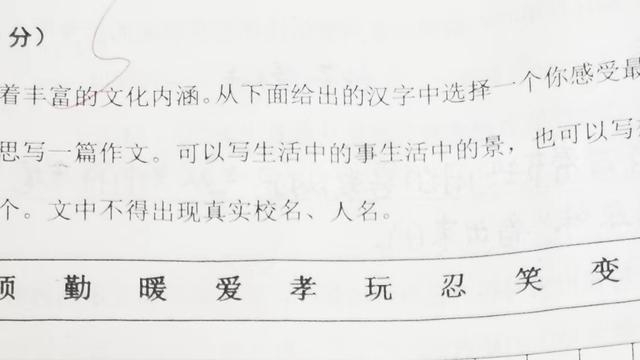 分）
着丰富的文化内涵。从下面给出的汉字中选择一个你感受最
思写一篇作文。可以写生活中的事生活中的景，也可以写
个。文中不得出现真实校名、人名。
勤 暖 爱 孝 玩 忍 笑 变